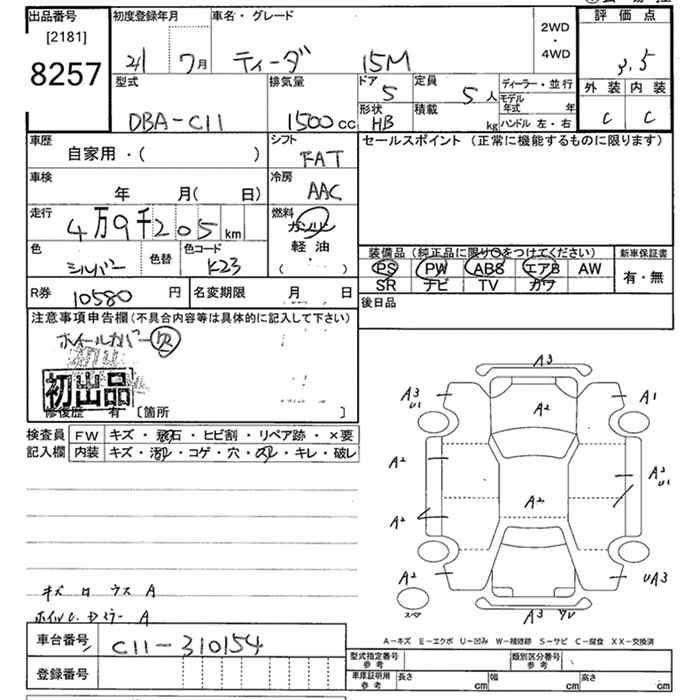 出品番号 初度登録年月 車名・グレード 2WD・4WD 評価点
[2181]
8257
21 7月 ティーダ 15M 3.5
型式 排気量 ドア 定員 ディーラー・並行 外装 内装
DBA-C11 1500cc 5 5人 モデル年式 年 C C
形状 HB 積載 kg ハンドル 左・右
車歴 シフト セールスポイント (正常に機能するものに限ります)
自家用・( ) FAT
車検 冷房
年 月( 日) AAC
走行 燃料
4万9千205km ガソリン
軽油
( )
色 色替 色コード 装備品 (純正品に限り○をつけてください) 新車保証書
シルバー K23 PS PW ABS エアB AW 有・無
SR ナビ TV カワ
R券 10580円 名変期限 月 日 後日品
注意事項申告欄(不具合内容等は具体的に記入して下さい)
ホイールカバー欠
初出品
修復歴 有 [箇所 ]
検査員 FW キズ・飛石・ヒビ割・リペア跡・×要
記入欄 内装 キズ・汚れ・コゲ・穴・スレ・キレ・破レ
A3
A3 U1 A2 A1
A2 A3 U1
A2 A2
A2 UA3
A3
スペア
キズ
A
A
A-キズ E-エクボ U-凹み W-補修跡 S-サビ C-腐食 XX-交換済
車台番号 C11-310154
登録番号
型式指定番号 参考 類別区分番号 参考
車庫証明用 参考 長さ cm 幅 cm 高さ cm